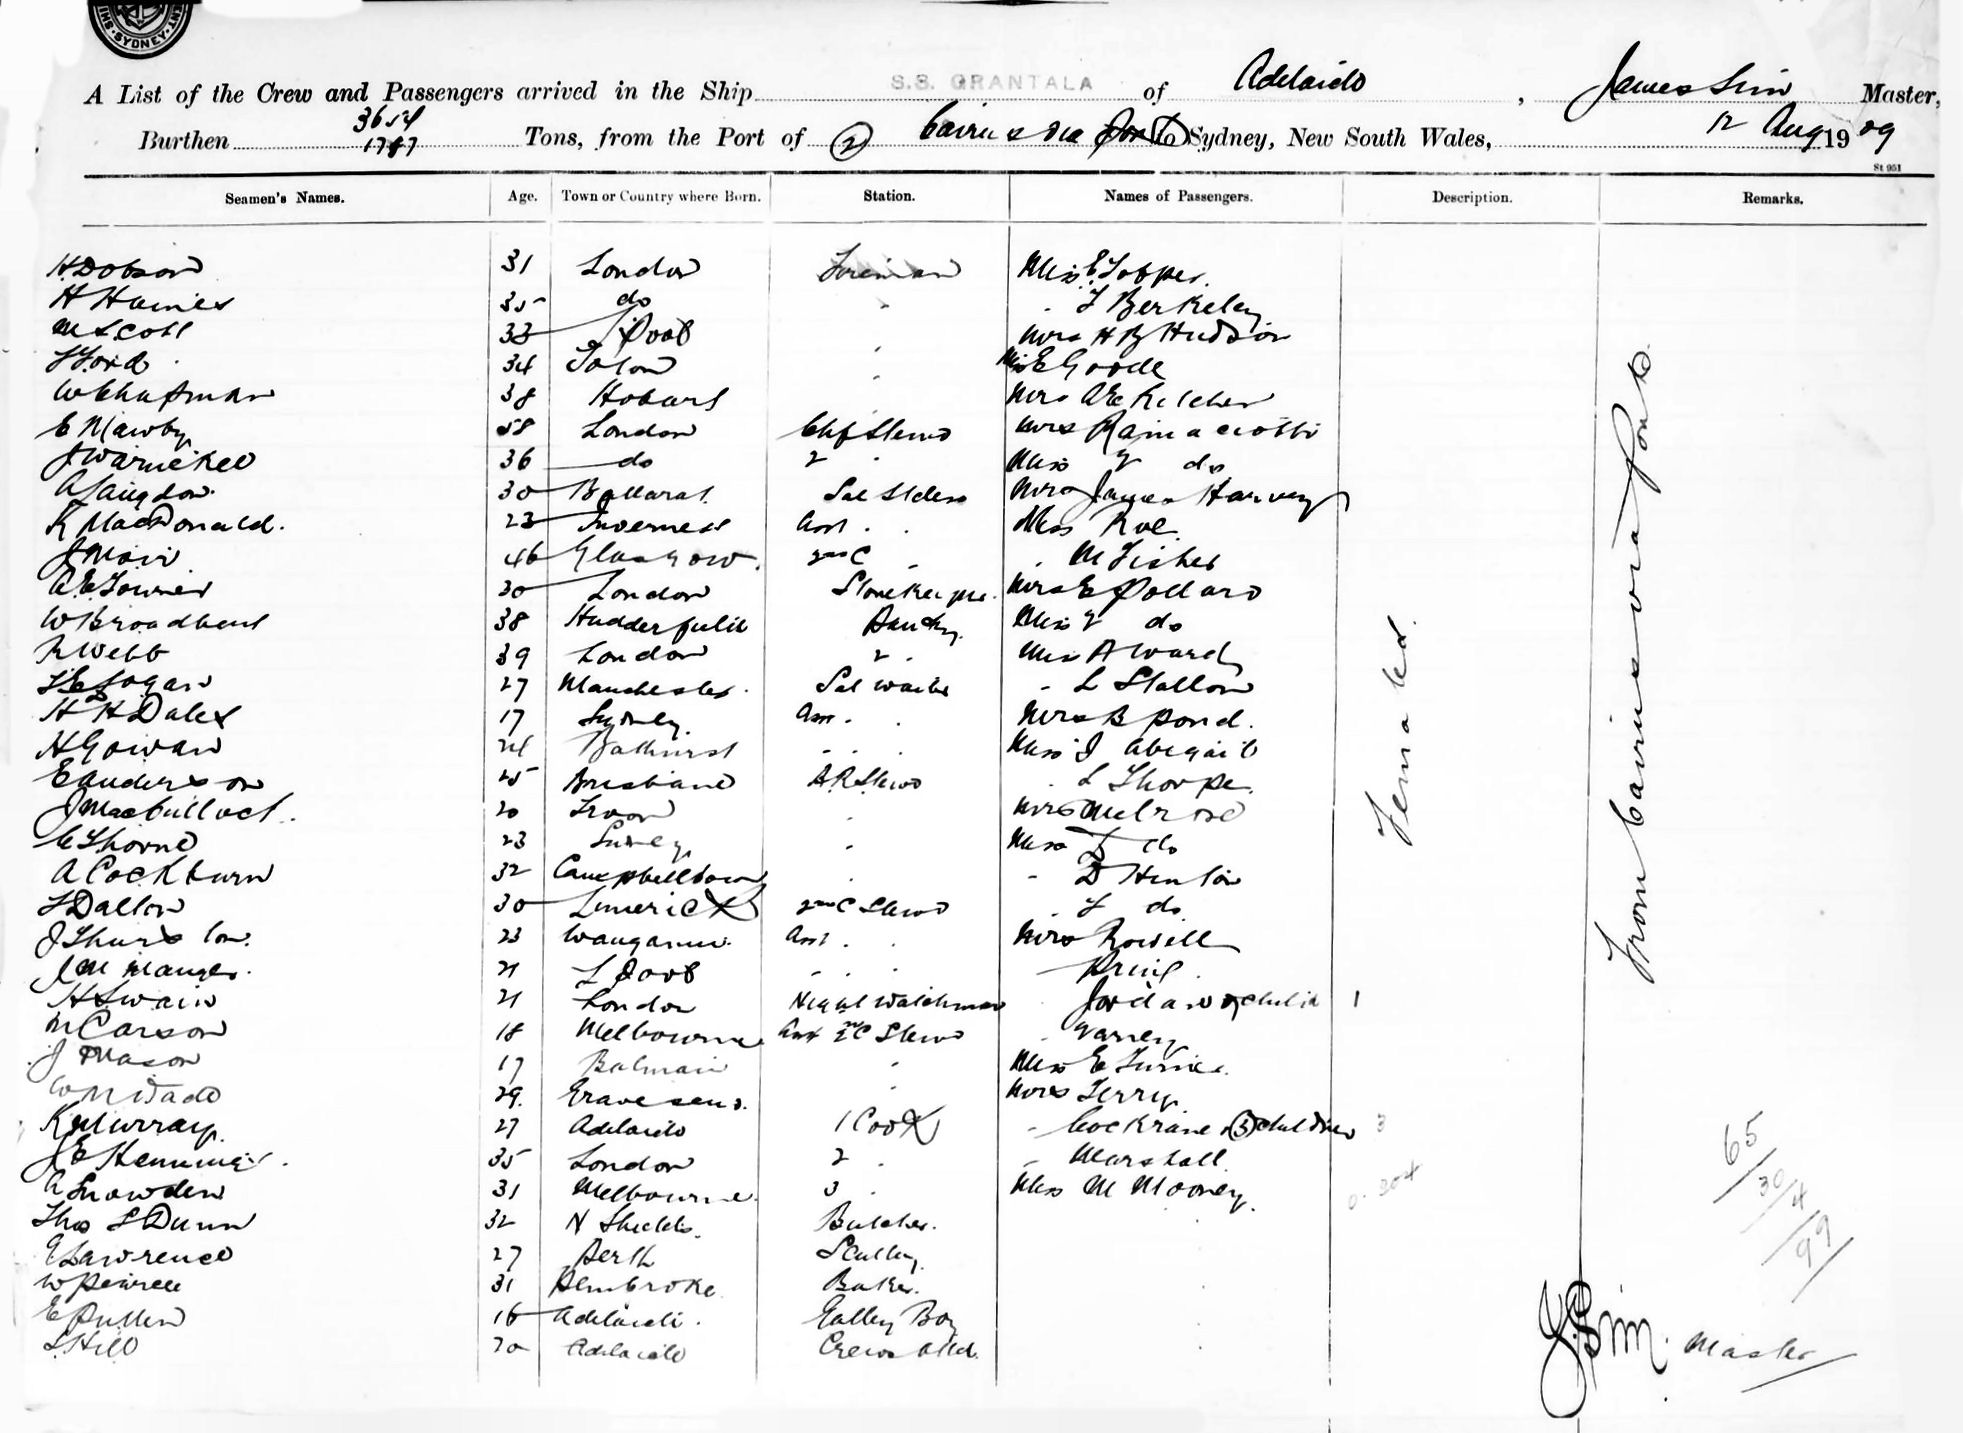 SYDNEY
A List of the Crew and Passengers arrived in the Ship S.S. GRANTALA of Adelaide, James Sim Master,
Burthen 3654 1787 Tons, from the Port of (2) Cairns via Ports to Sydney, New South Wales, 12 Aug 1909
St 951
Seamen's Names. Age. Town or Country where Born. Station. Names of Passengers. Description. Remarks.
H Dobson 31 London Fireman Miss E Topper
H Haines 35 do " F Berkeley
M Scott 33 L Pool " Mrs H B Hudson
F Ford 34 " Miss E Goode
W Chapman 38 Hobart Mrs A E Kilcher
C Mawby 58 London Chf Stewd Mrs
J Warnekee 36 do 2 " Miss Y do
A Langdon 30 Ballarat Sal Stdess Mrs James Harvey
K MacDonald. 23 Inverness Asst " Miss Roe
J Moir 46 Glasgow. 2nd C " " M Fisher
A E Towner 30 London Storekeeper Mrs E Pollard
W Broadbent 38 Hudderfield Pantry Miss Y do
R Webb 39 London 2 " Miss A Ward
F E Logan 27 Manchester Sal Waiter " L Stallon
H H Dales 17 Sydney Asst " Mrs B Pond.
H Gowan 24 Bathurst " " " Miss J Abigail
E Anderson 25 Brisbane B R Stewd " L Thorpe
J MacCulloch. 20 Troon " Mrs Melrose
C Thorne 23 Sydney " Miss do
A Cockburn 32 Campbelltown " " D Hinton
Dalton 30 Limerick 2nd C Stewd " Y do
J Thurston. 23 Wanganui Asst " Mrs Rowell
J M Manger. 21 L Pool " " "
H Swain 21 London Night Watchman " Jordan & child 1
N Carson 18 Melbourne Asst 2nd C Stewd " Varney
J Mason 17 Balmain " Miss E Turner
W N Wade 29. Gravesend. " Mrs Terry
K Murray 27 Adelaide 1 Cook " Cockrane & (3) children 3
J E Hemmings. 35 London 2 " " Marshall
A Snowden 31 Melbourne 3 " Miss M Mooney
Thos S Dunn 32 N Shields. Butcher.
Lawrence 27 Perth Scully
W Pearce 31 Pembroke Baker.
E Pullen 16 Adelaide. Galley Boy
Hill 20 Adelaide Crews Attd.
Female d.
From Cairns via Ports
65
30
4
99
J. Sim. Master